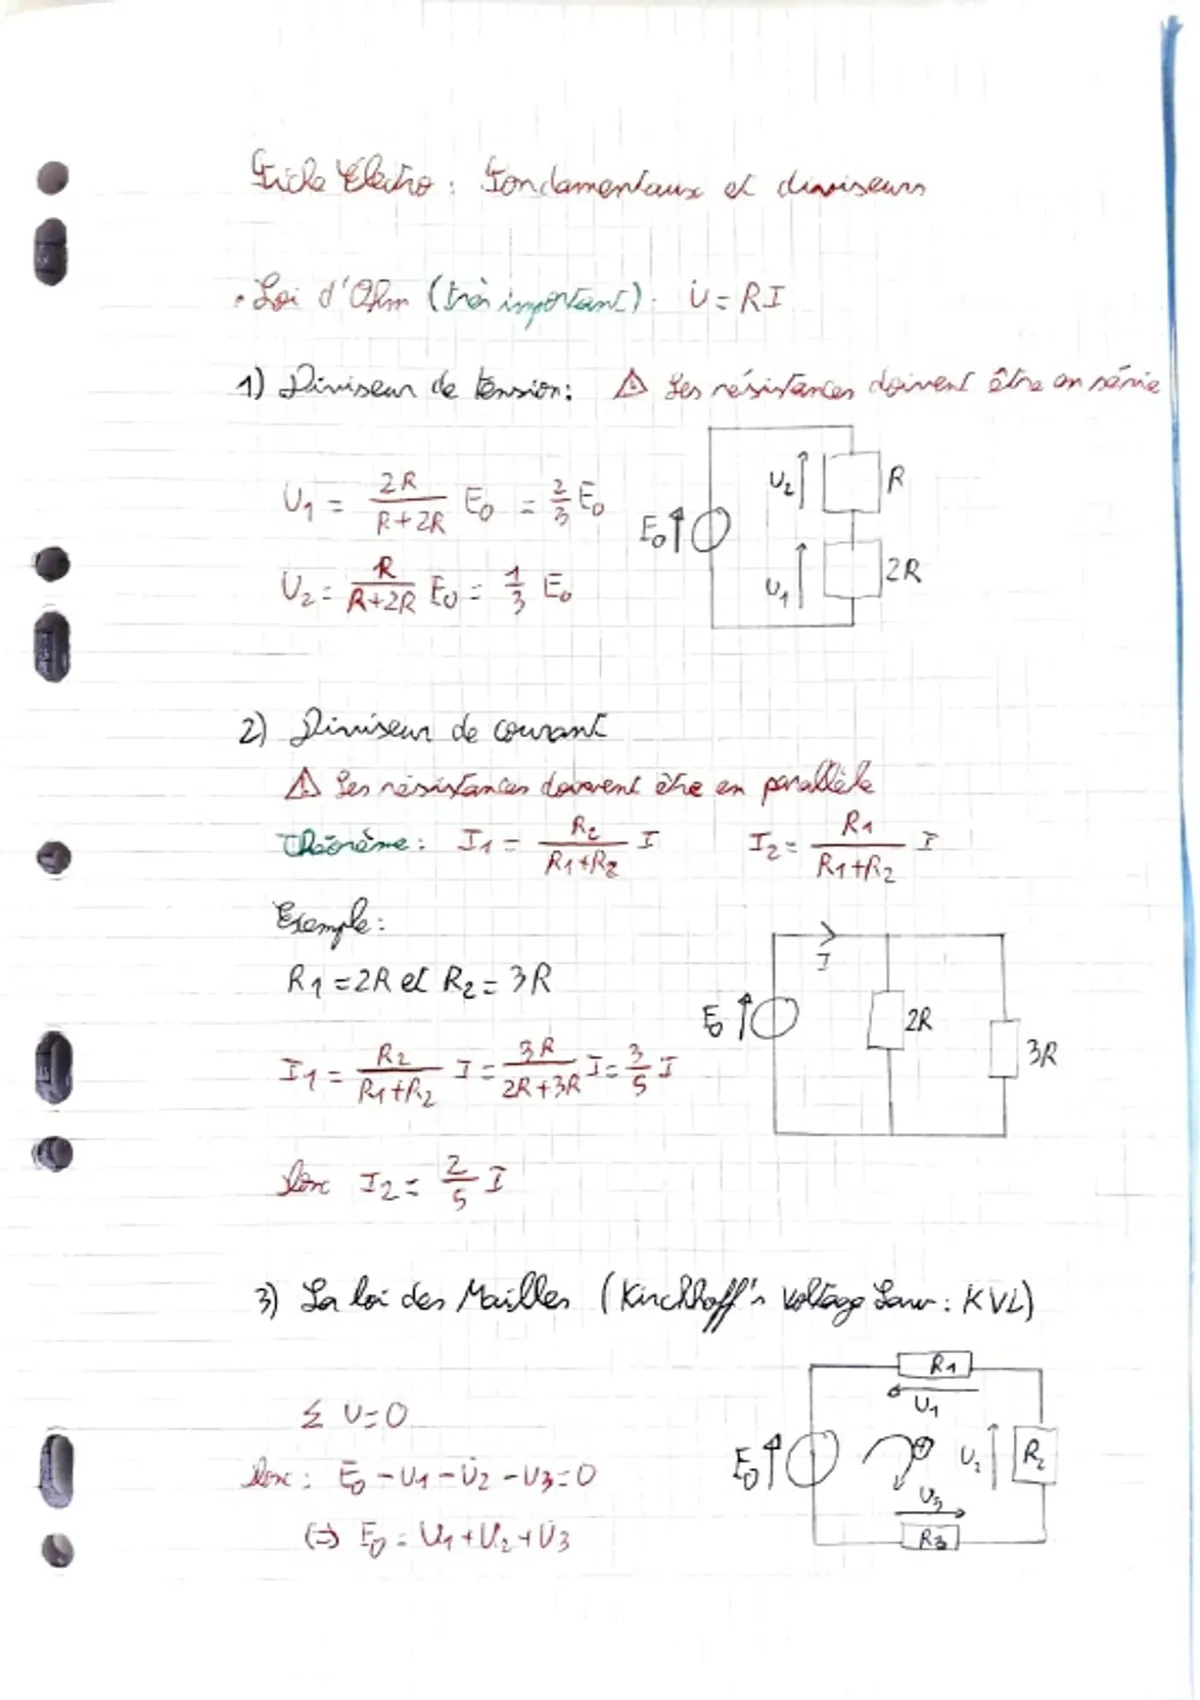 Fiche Électro : Fondamentaux et diviseurs
• Loi d'Ohm (très important) : U = RI
1) Diviseur de tension : ⚠ Les résistances doivent être en série
U1 = 2R/(R+2R) E0 = 2/3 E0
U2 = R/(R+2R) E0 = 1/3 E0
E0
U2
R
U1
2R
2) Diviseur de courant
⚠ Les résistances doivent être en parallèle
Théorème : I1 = R2/(R1+R2) I I2 = R1/(R1+R2) I
Exemple :
R1 = 2R et R2 = 3R
I1 = R2/(R1+R2) I = 3R/(2R+3R) I = 3/5 I
Donc I2 = 2/5 I
I
E0
2R
3R
3) La loi des Mailles (Kirchhoff's Voltage Law : KVL)
Σ U = 0
Donc : E0 - U1 - U2 - U3 = 0
(=) E0 = U1 + U2 + U3
R1
U1
E0
+
U2
R2
U3
R3